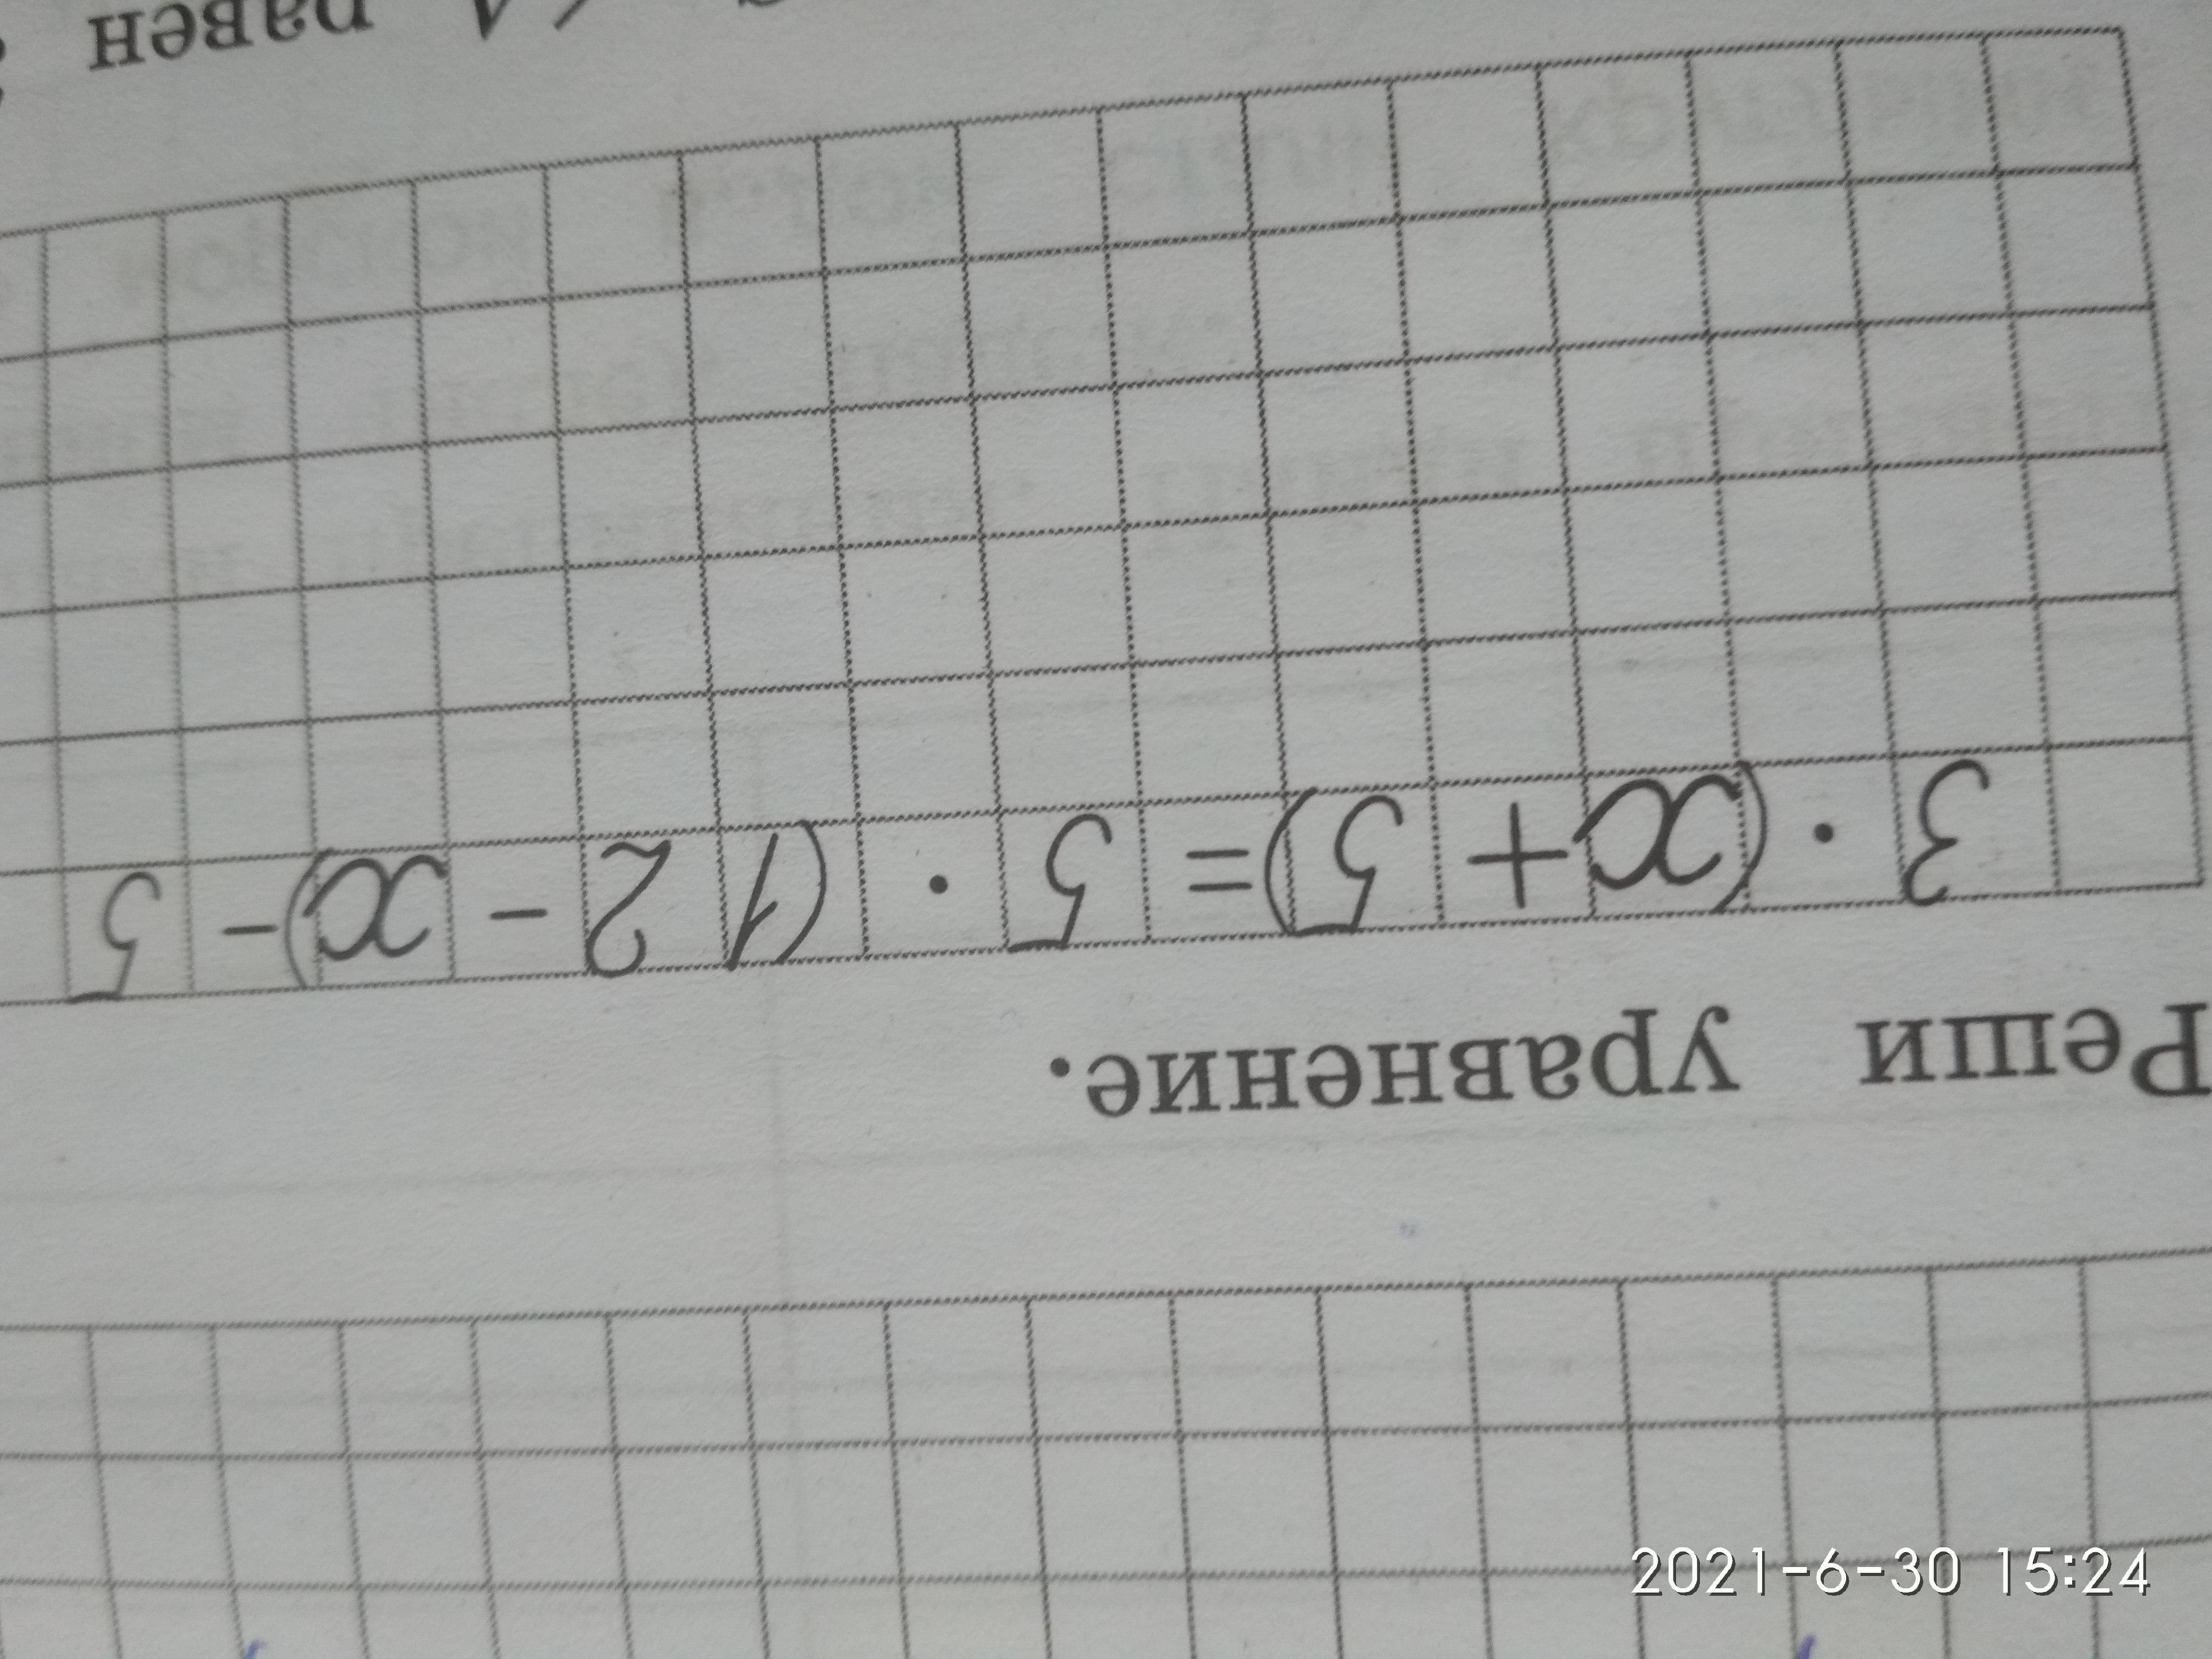 Реши уравнение.
3 · (x + 5) = 5 · (12 - x) - 5
равен
2021-6-30 15:24